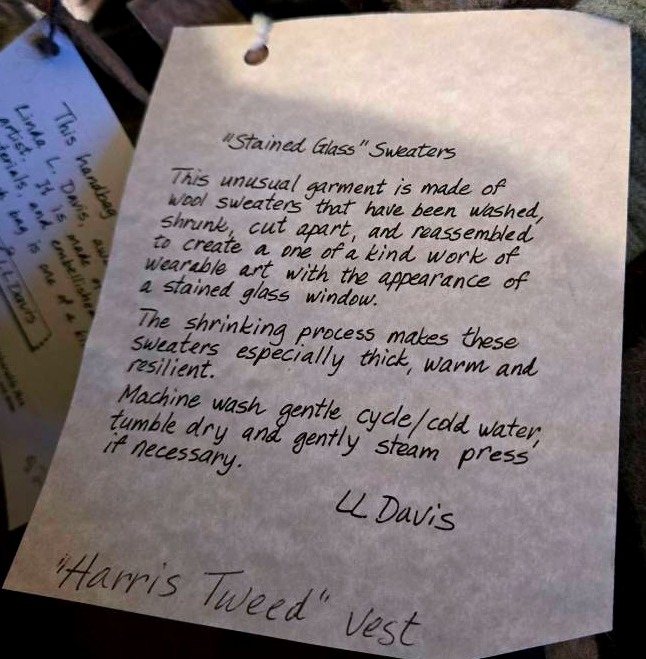 "Stained Glass" Sweaters
This unusual garment is made of
wool sweaters that have been washed,
shrunk, cut apart, and reassembled
to create a one of a kind work of
wearable art with the appearance of
a stained glass window.
The shrinking process makes these
sweaters especially thick, warm and
resilient.
Machine wash gentle cycle/cold water,
tumble dry and gently steam press
if necessary.
LL Davis
"Harris Tweed" Vest
This handbag
Linda L. Davis,
artist. It is made
and embellish
bag is one of a